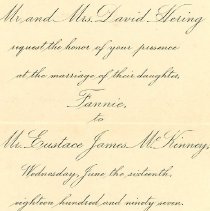 Mr. and Mrs. David Hering
request the honor of your presence
at the marriage of their daughter,
Fannie,
to
Mr. Eustace James McKinney,
Wednesday, June the sixteenth,
eighteen hundred and ninety seven.